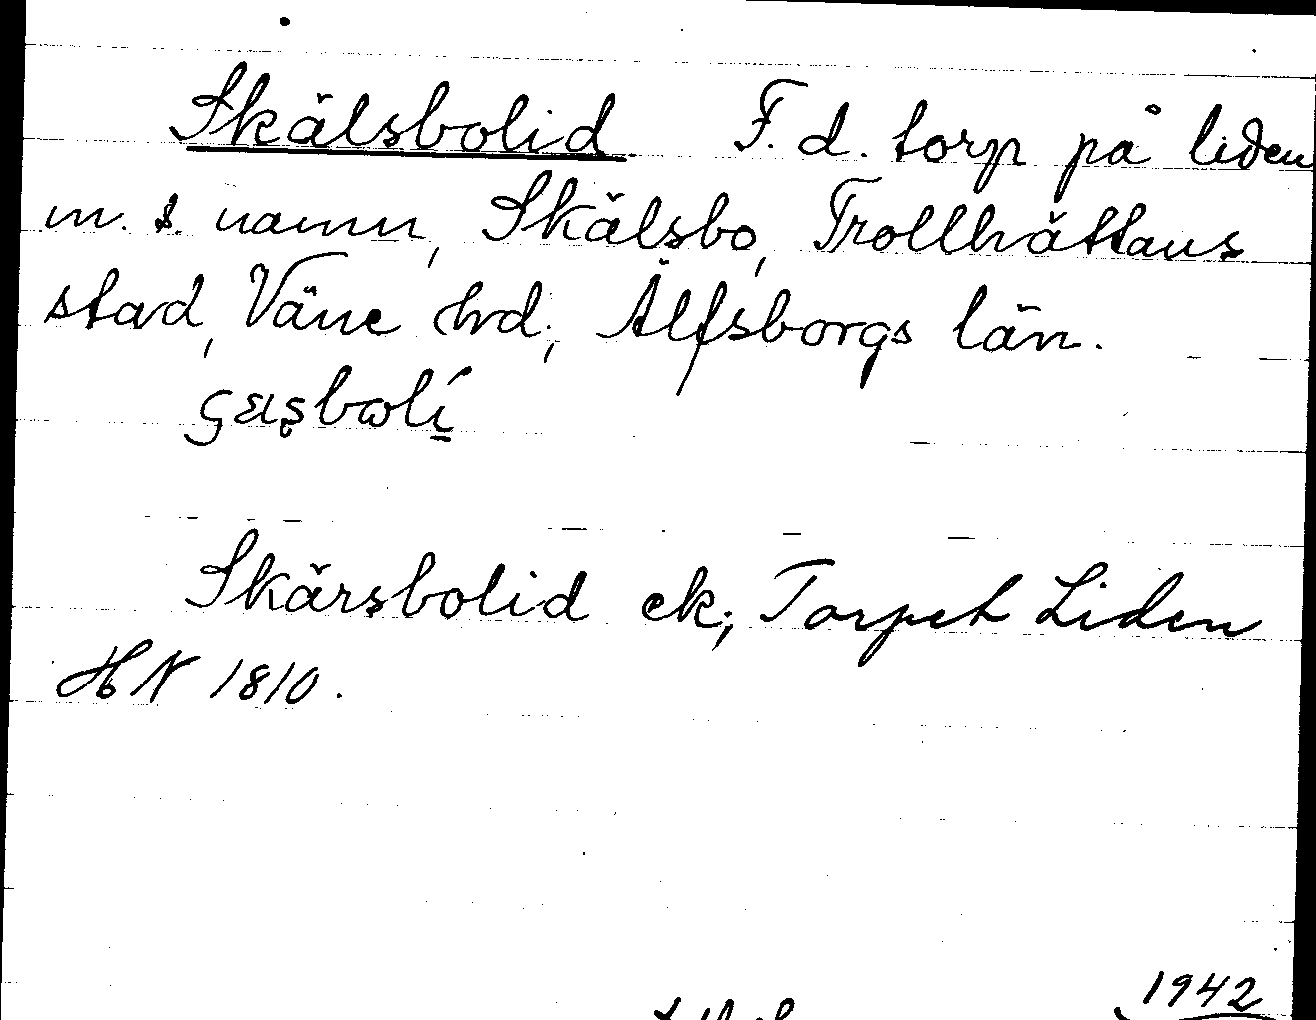 Skälsbolid F. d. torp på liden
m. s. namn, Skälsbo, Trollhättans
stad, Väne hd; Älfsborgs län.
Skärsbolid ek; Torpet Liden
HN 1810.
1942